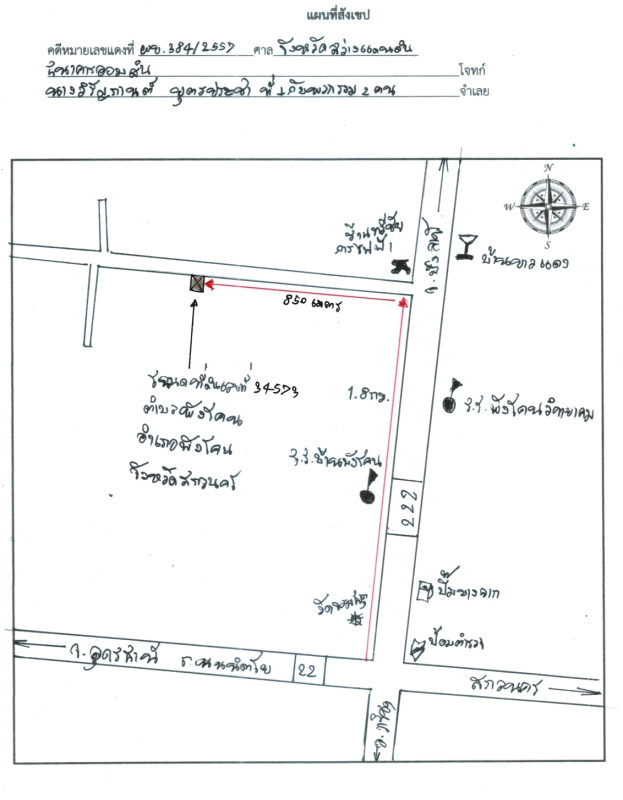 แผนที่สังเขป
คดีหมายเลขแดงที่ ผบ.384/2557 ศาล จังหวัดสว่างแดนดิน
ธนาคารออมสิน โจทก์
ที่ 1 กับพวกรวม 2 คน จำเลย
N
W E
S
850 เมตร
บ้านขาวแดง
โฉนดที่ดินเลขที่ 34573
ตำบลพังโคน
อำเภอพังโคน
จังหวัดสกลนคร
1.8 กม.
ร.ร.พังโคนวิทยาคม
ร.ร.บ้านพังโคน
222
ปั๊มบางจาก
ป้อมตำรวจ
จ.อุดรธานี ถ.นิตโย 22
สกลนคร